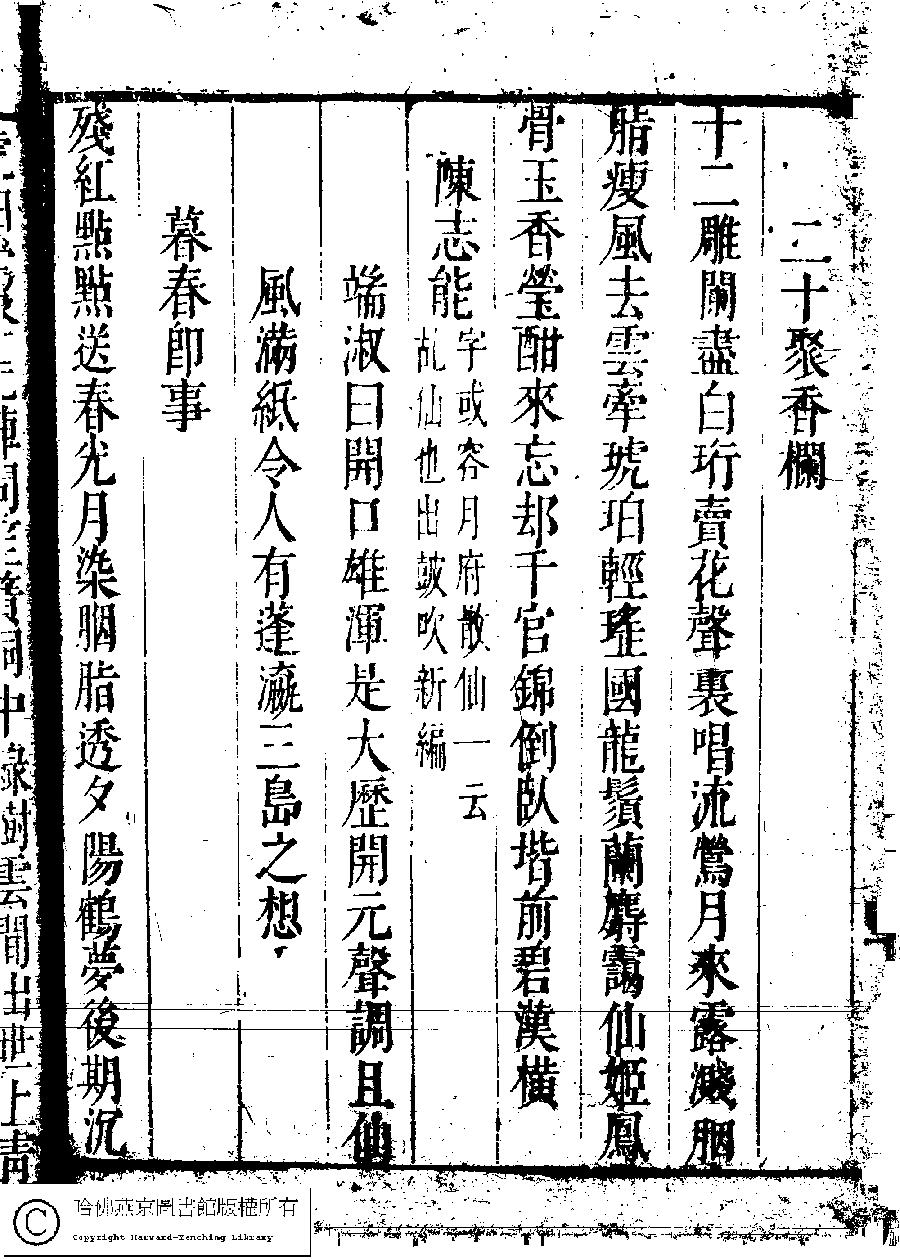 二十聚香欄
十二雕闌盡白珩賣花聲裏唱流鶯月來露濺胭
脂瘦風去雲牽琥珀輕瑤國龍鬚蘭麝靄仙姬鳳
骨玉香瑩酣來忘却千官錦倒臥堦前碧漢橫
陳志能字或容月府散仙一云
乩仙也出鼓吹新編
端淑曰開口雄渾是大歷開元聲調且仙
風滿紙令人有蓬瀛三島之想
暮春卽事
殘紅點點送春光月染胭脂透夕陽鶴夢後期沉
哈佛燕京圖書館版權所有
Copyright Harvard-Yenching Library